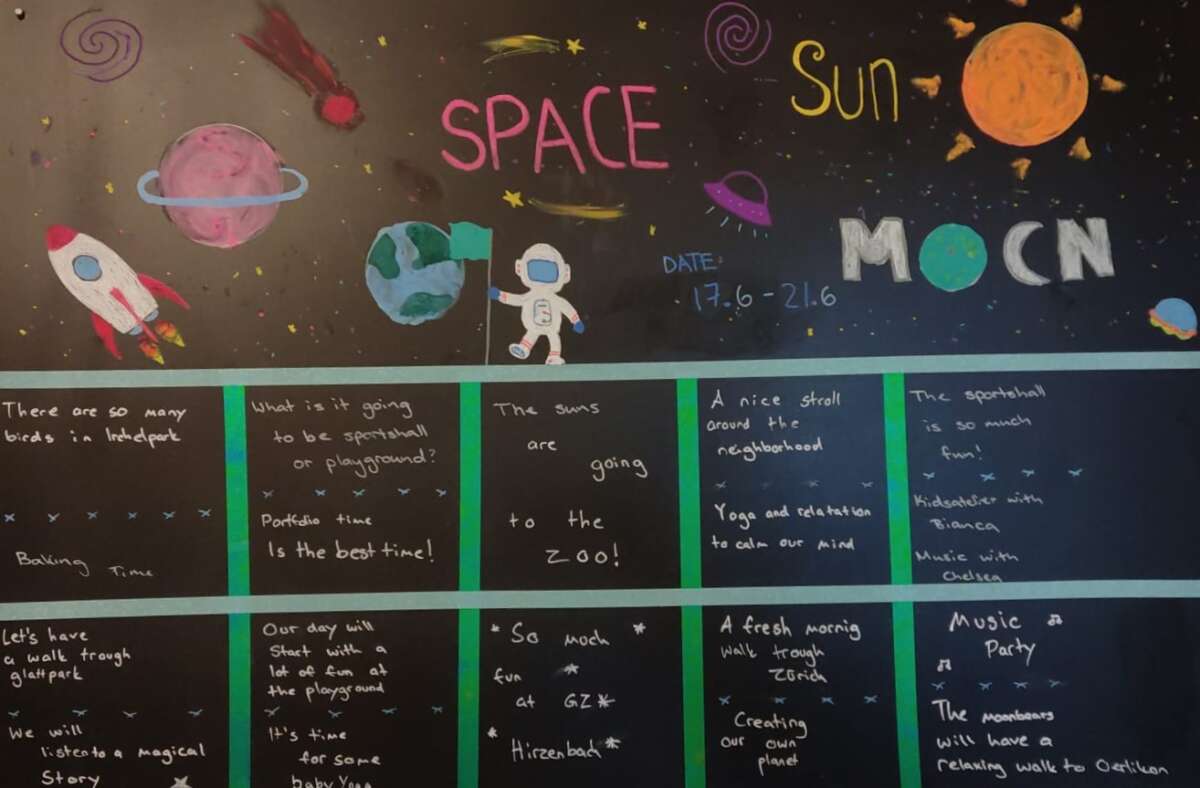 SPACE
Sun
MOON
DATE:
17.6 - 21.6
There are so many
birds in Irchelpark
Baking Time
What is it going
to be sportshall
or playground?
Portfolio time
Is the best time!
The suns
are
going
to the
ZOO!
A nice stroll
around the
neighborhood
Yoga and relatation
to calm our mind
The sportshall
is so much
fun!
Kidsatelier with
Bianca
Music with
Chelsea
Let's have
a walk trough
glattpark
We will
listen to a magical
Story
Our day will
Start with a
lot of fun at
the playground
It's time
for some
baby Yoga
So moch
fun
at GZ
Hirzenbach
A fresh mornig
walk trough
Zürich
Creating
our own
planet
Music
Party
The moonbears
will have a
relaxing walk to Oerlikon